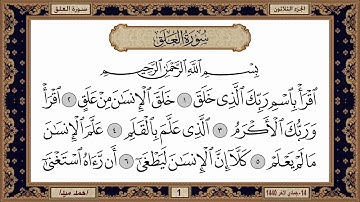 سورة العلق
الجزء الثلاثون
سُورَةُ العَلَقِ
بِسْمِ اللَّهِ الرَّحْمَٰنِ الرَّحِيمِ
ٱقْرَأْ بِٱسْمِ رَبِّكَ ٱلَّذِى خَلَقَ ١ خَلَقَ ٱلْإِنسَٰنَ مِنْ عَلَقٍ ٢ ٱقْرَأْ
وَرَبُّكَ ٱلْأَكْرَمُ ٣ ٱلَّذِى عَلَّمَ بِٱلْقَلَمِ ٤ عَلَّمَ ٱلْإِنسَٰنَ
مَا لَمْ يَعْلَمْ ٥ كَلَّآ إِنَّ ٱلْإِنسَٰنَ لَيَطْغَىٰٓ ٦ أَن رَّءَاهُ ٱسْتَغْنَىٰٓ
احمد
1
14- جمادى الآخر 1440